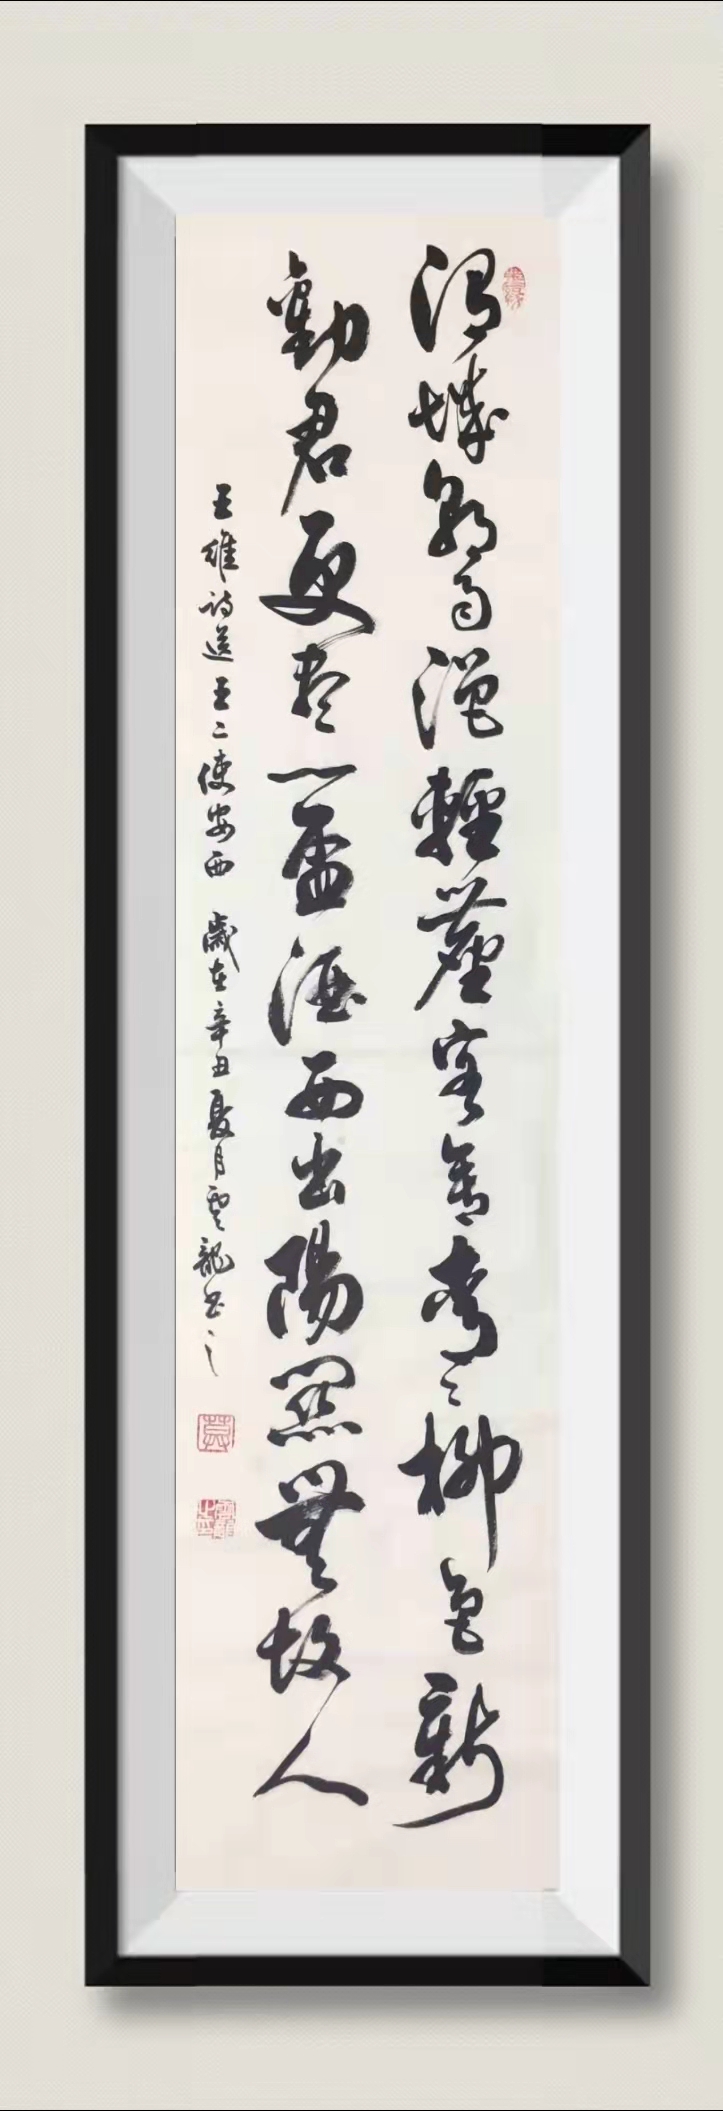 渭城朝雨浥輕塵客舍青々柳色新
勸君更盡一杯酒西出陽關無故人
王維詩送王二使安西 歲在辛丑夏月雲龍書之